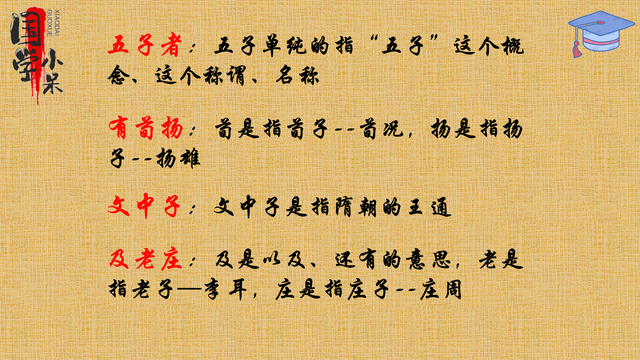 国学
小呆
XIAODAI
GUOXUE
五子者：五子单纯的指“五子”这个概
念、这个称谓、名称
有荀扬：荀是指荀子--荀况，扬是指扬
子--扬雄
文中子：文中子是指隋朝的王通
及老庄：及是以及、还有的意思，老是
指老子—李耳，庄是指庄子--庄周